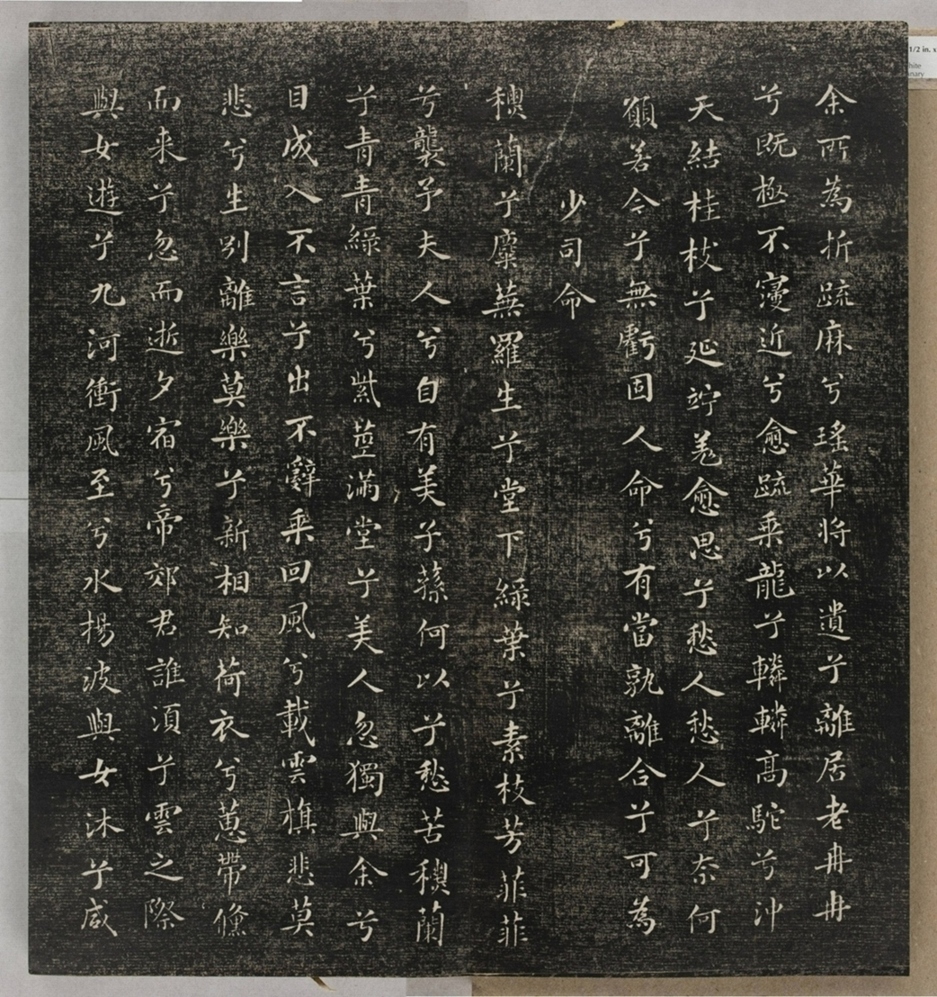 余所為折疏麻兮瑤華將以遺兮離居老冉冉
兮既極不寖近兮愈疏乘龍兮轔轔高駝兮沖
天結桂枝兮延竚羌愈思兮愁人愁人兮奈何
願若今兮無虧固人命兮有當孰離合兮可為
少司命
穮蘭兮麋蕪羅生兮堂下綠葉兮素枝芳菲菲
兮襲予夫人兮自有美子蓀何以兮愁苦穮蘭
兮青青綠葉兮紫莖滿堂兮美人忽獨與余兮
目成入不言兮出不辭乘回風兮載雲旗悲莫
悲兮生別離樂莫樂兮新相知荷衣兮蕙帶儵
而来兮忽而逝夕宿兮帝郊君誰須兮雲之際
與女遊兮九河衝風至兮水揚波與女沐兮咸
1/2 in. x